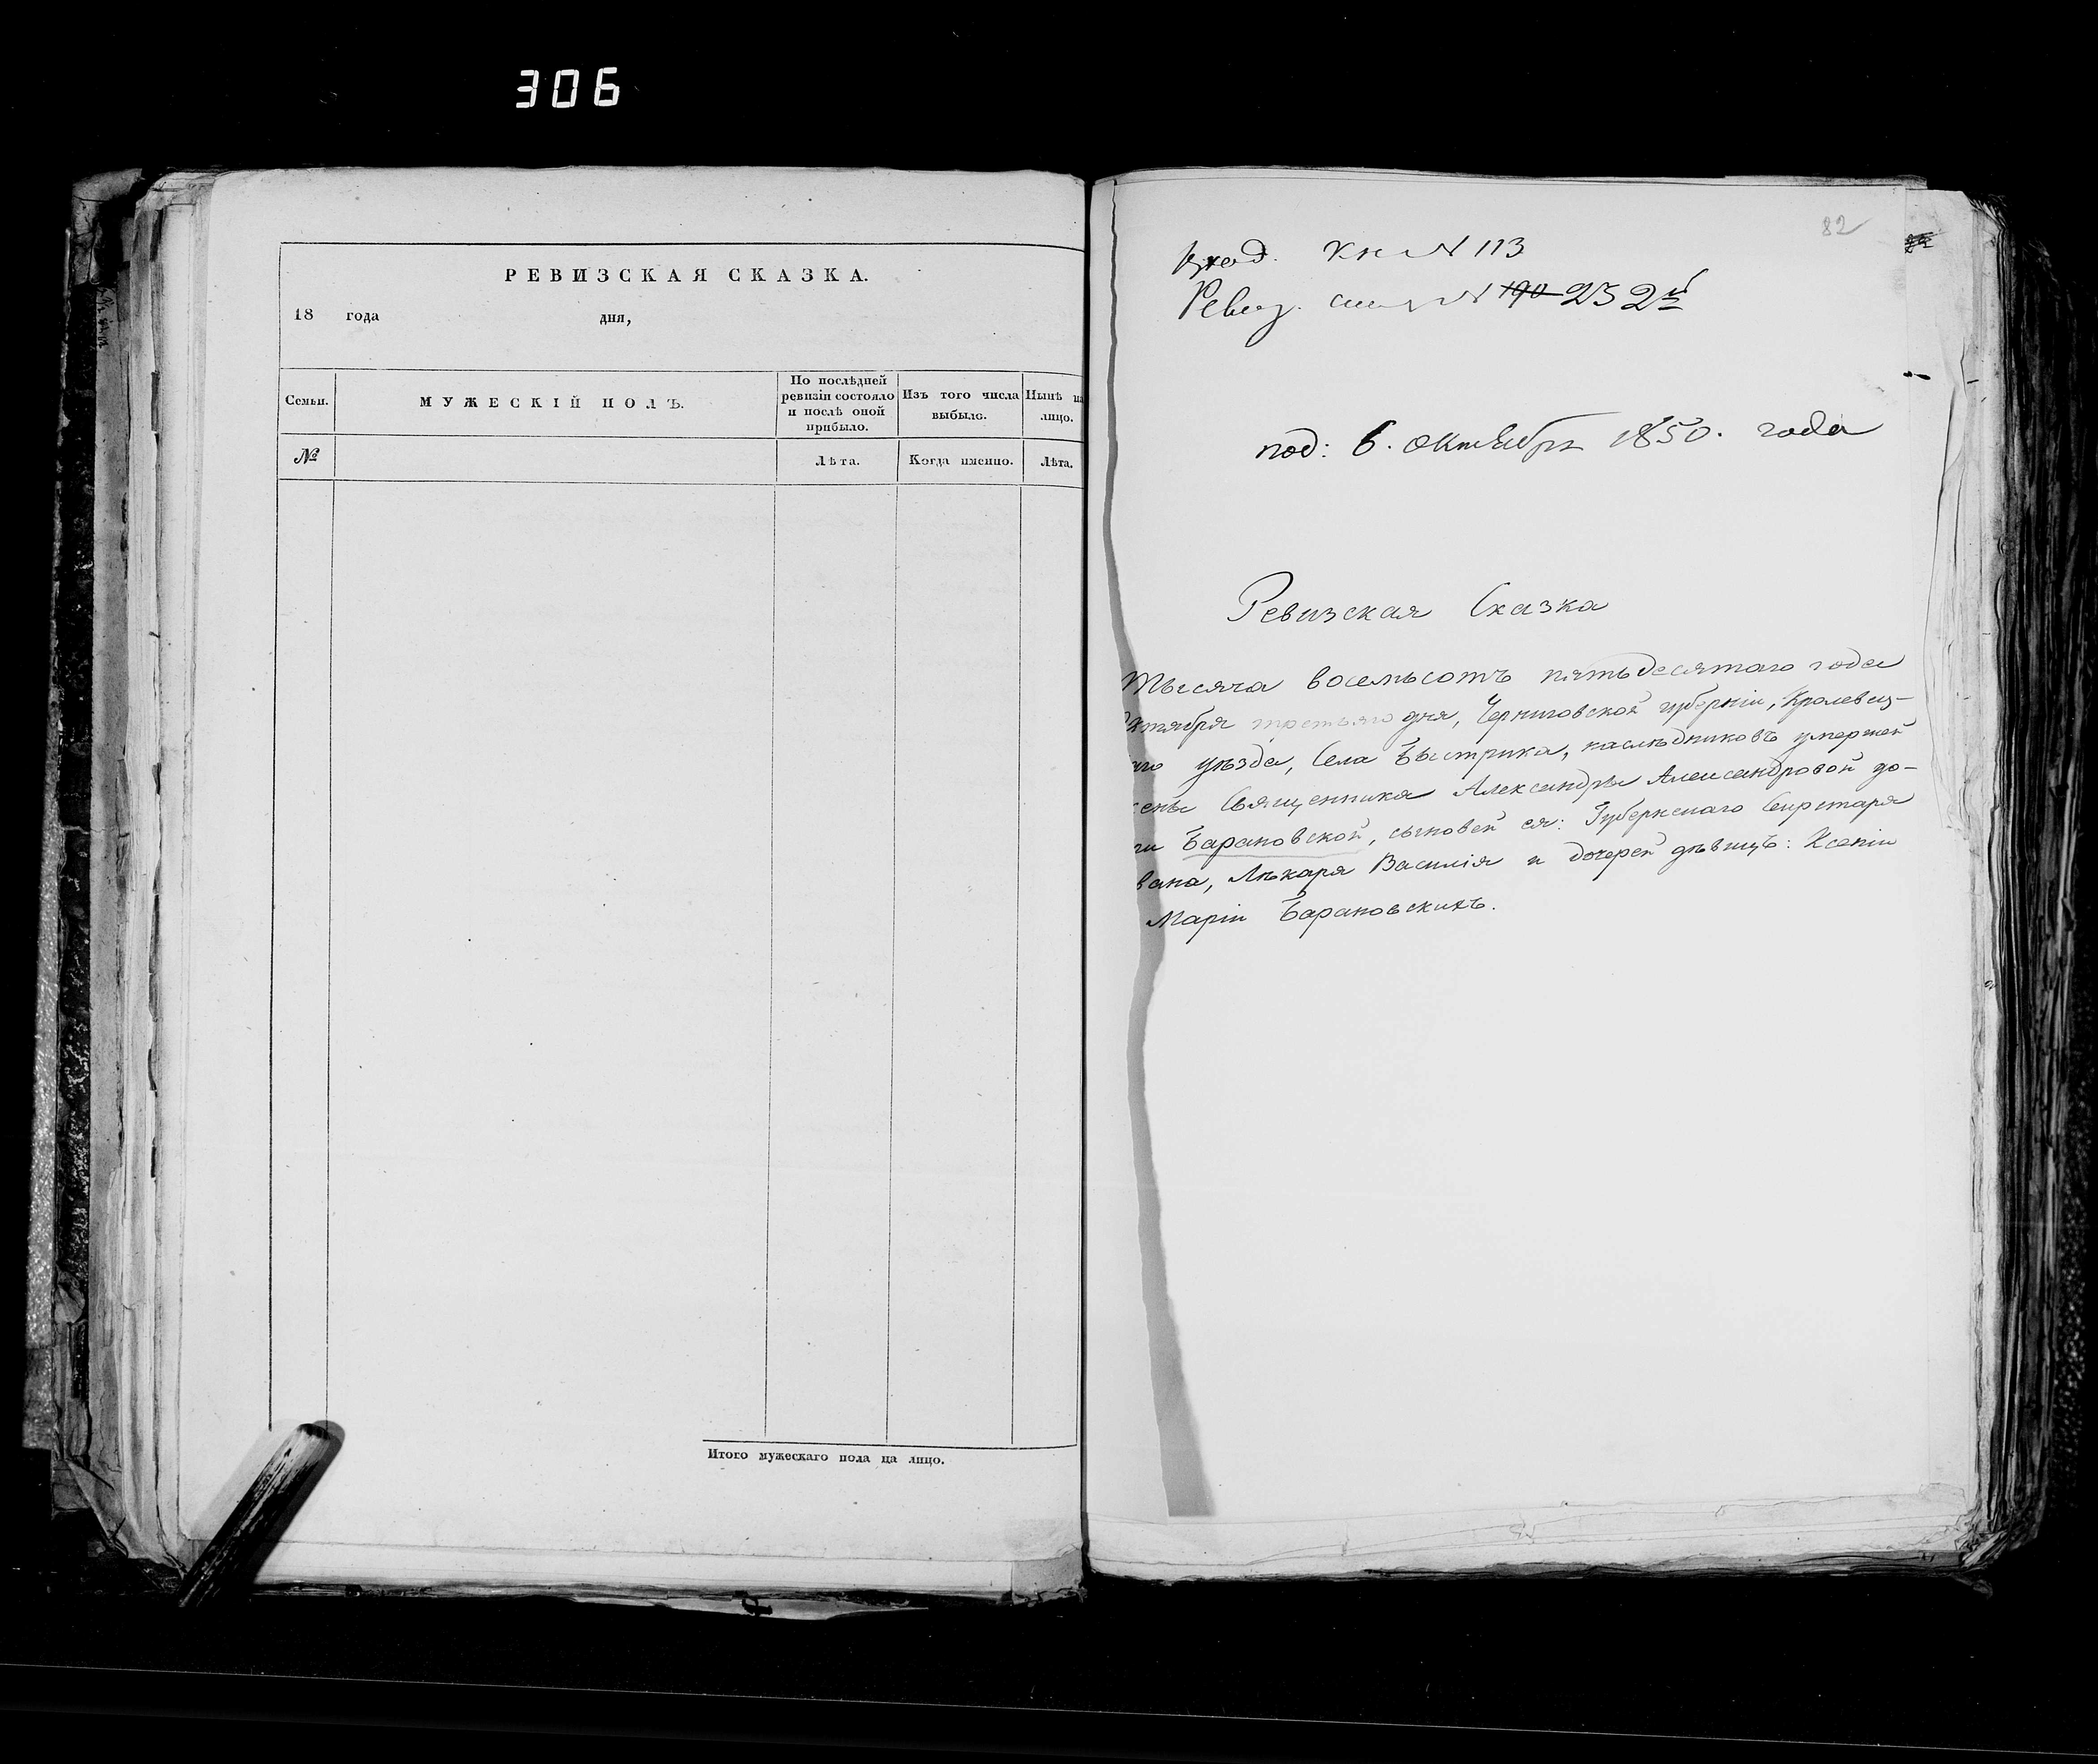 306
РЕВИЗСКАЯ СКАЗКА.
18 года дня,
Семьи.
МУЖЕСКІЙ ПОЛЪ.
По послѣдней
ревизіи состояло
и послѣ оной
прибыло.
Изъ того числа
выбыло.
Нынѣ на
лицо.
№
Лѣта.
Когда именно.
Лѣта.
Итого мужескаго пола на лицо.
82
вход. Кн № 113
Ревиз. № 190 232
под: 6. Октября 1850. года
Ревизская Сказка
Тысяча восемьсотъ пятьдесятаго года
Октября третьяго дня, Черниговской губерніи, Кролевец-
аго уѣзда, Села Быстрика, наслѣдниковъ умершей
ены Священника Александры Александровой до-
ри Барановской, сыновей ея: Губернскаго Секретаря
вана, Лѣкаря Василія и дочерей дѣвицъ: Ксеніи
Маріи Барановскихъ.